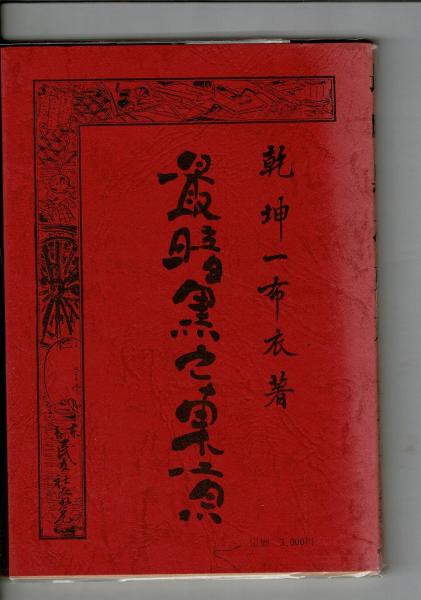 乾坤一布衣著
最暗黒之東京
東京
民友社
3,000円